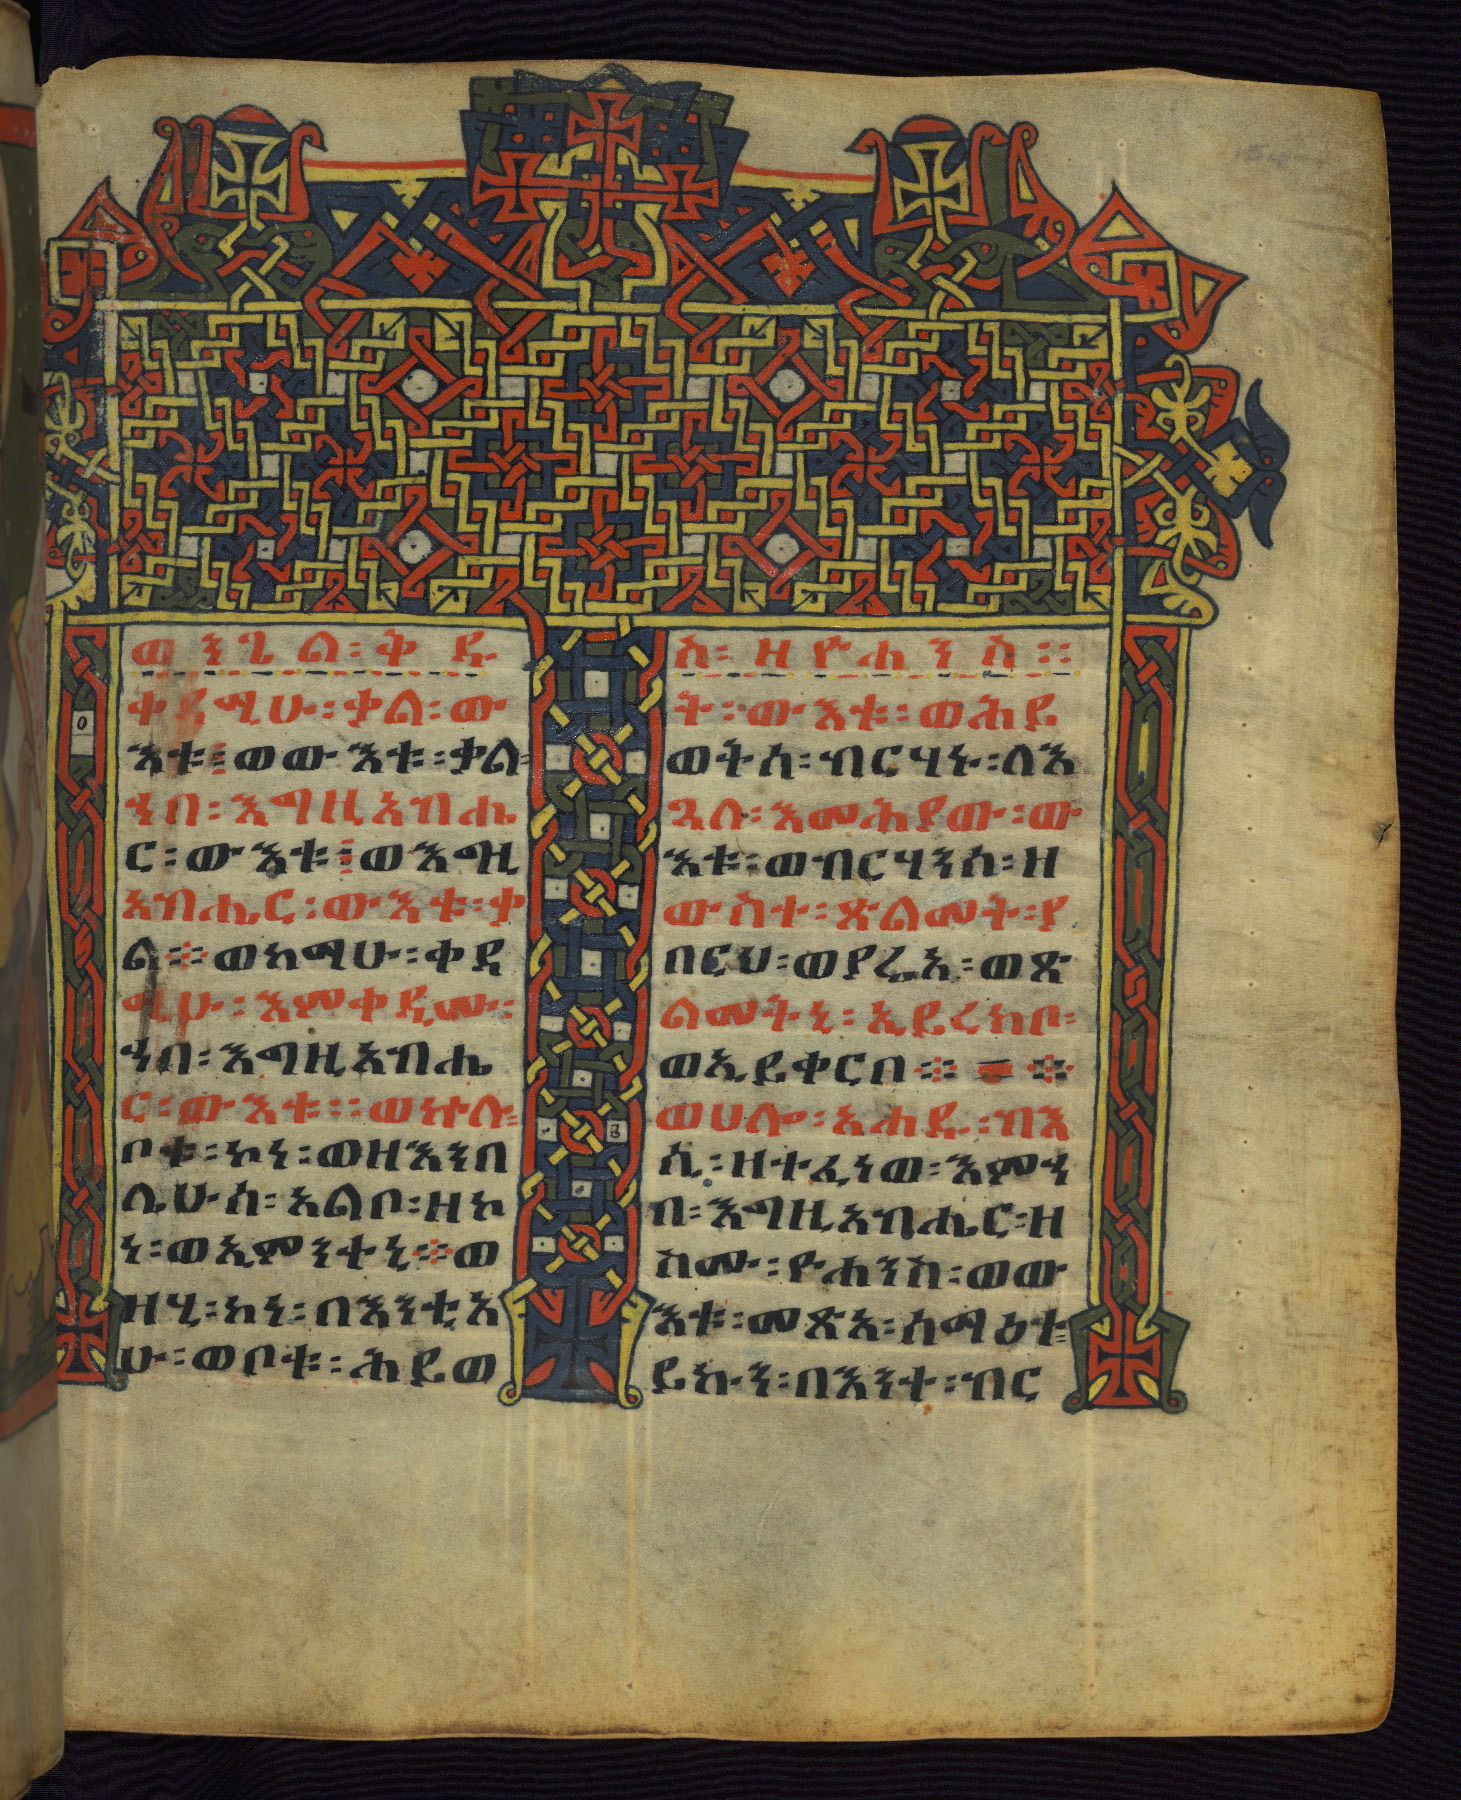 ወንጌል፡ቅዱ
ስ፡ዘዮሐንስ፡፡
ቀዳሚሁ፡ቃል፡ው
እቱ፡ወውእቱ፡ቃል፡
ኀበ፡እግዚአብሔ
ር፡ውእቱ፡ወእግዚ
አብሔር፡ውእቱ፡ቃ
ል፨ወከማሁ፡ቀዳ
ሚሁ፡እምቀዲሙ፡
ኀበ፡እግዚአብሔ
ር፡ውእቱ፡፡ወኵሉ፡
ቦቱ፡ኮነ፡ወዘእንበ
ሌሁሰ፡አልቦ፡ዘኮ
ነ፡ወኢምንተኒ፨ወ
ዘሂ፡ኮነ፡በእንቲአ
ሁ፡ወቦቱ፡ሕይወ
ት፡ውእቱ፡ወሕይ
ወትሰ፡ብርሃኑ፡ለእ
ጓለ፡እመሕያው፡ው
እቱ፡ወብርሃንሰ፡ዘ
ውስተ፡ጽልመት፡ያ
በርህ፡ወያሬኢ፡ወጽ
ልመትኒ፡ኢይረክቦ፡
ወኢይቀርቦ፨፨
ወሀሎ፡አሐዱ፡ብእ
ሲ፡ዘተፈነወ፡እምኀ
በ፡እግዚአብሔር፡ዘ
ስሙ፡ዮሐንስ፡ወው
እቱ፡መጽአ፡ሰማዕተ፡
ይኩን፡በእንተ፡ብር